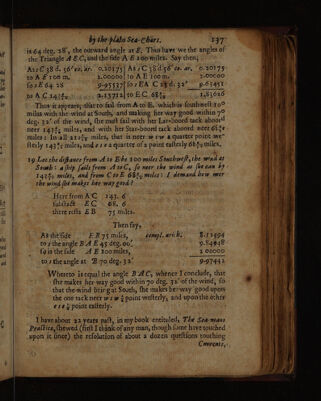 by the plain Sea-Chart. 137
is 64 deg. 28', the outward angle at E. Thus have we the angles of
the Triangle A E C, and the side A E 100 miles. Say then,
As s C 38 d. 56' co. ar. 0.20175 As s C 38 d. 56' co. ar. 0.20175
to A E 100 m. 2.00000 to A E 100 m. 2.00000
so s E 64 28 9.95537 so s E A C
to A C 2.15712 to E C 1.83026
Thus it appears, that to sail from A to E, which is southwest
miles with the wind at South, and making her way good within 70
deg. 32' of the wind, she must sail with her Larboord tack aboord
neer miles, and with her Star-boord tack aboord neer
miles: In all miles, that is neer w s w a quarter point we-
sterly miles, and e s e a quarter of a point easterly miles.
19 Let the distance from A to E be 100 miles Southwest, the wind at
South: A ship sails from A to C, so neer the wind as she can by
miles, and from C to E miles: I demand how neer
the wind she makes her way good?
Here from A C 143. 6
substract E C 68. 6
there rests E B 75 miles.
Then say,
As the side E B 75 miles, compl. arith. 8.12494
to s the angle B A E 45 deg. 00' 9.84948
so is the side A E 100 miles, 2.00000
to s the angle at B 70 deg. 32' 9.97442
Whereto is equal the angle B A C, whence I conclude, that
she makes her way good within 70 deg. 32' of the wind, so
that the wind being at South, she makes her way good upon
the one tack neer w s w ¼ point westerly, and upon the other
e s e ¼ point easterly.
I have about 22 years past, in my book entituled, The Sea-mans
Practice, shewed (first I think of any man, though some have touched
upon it since) the resolution of about a dozen questions touching
Currents,